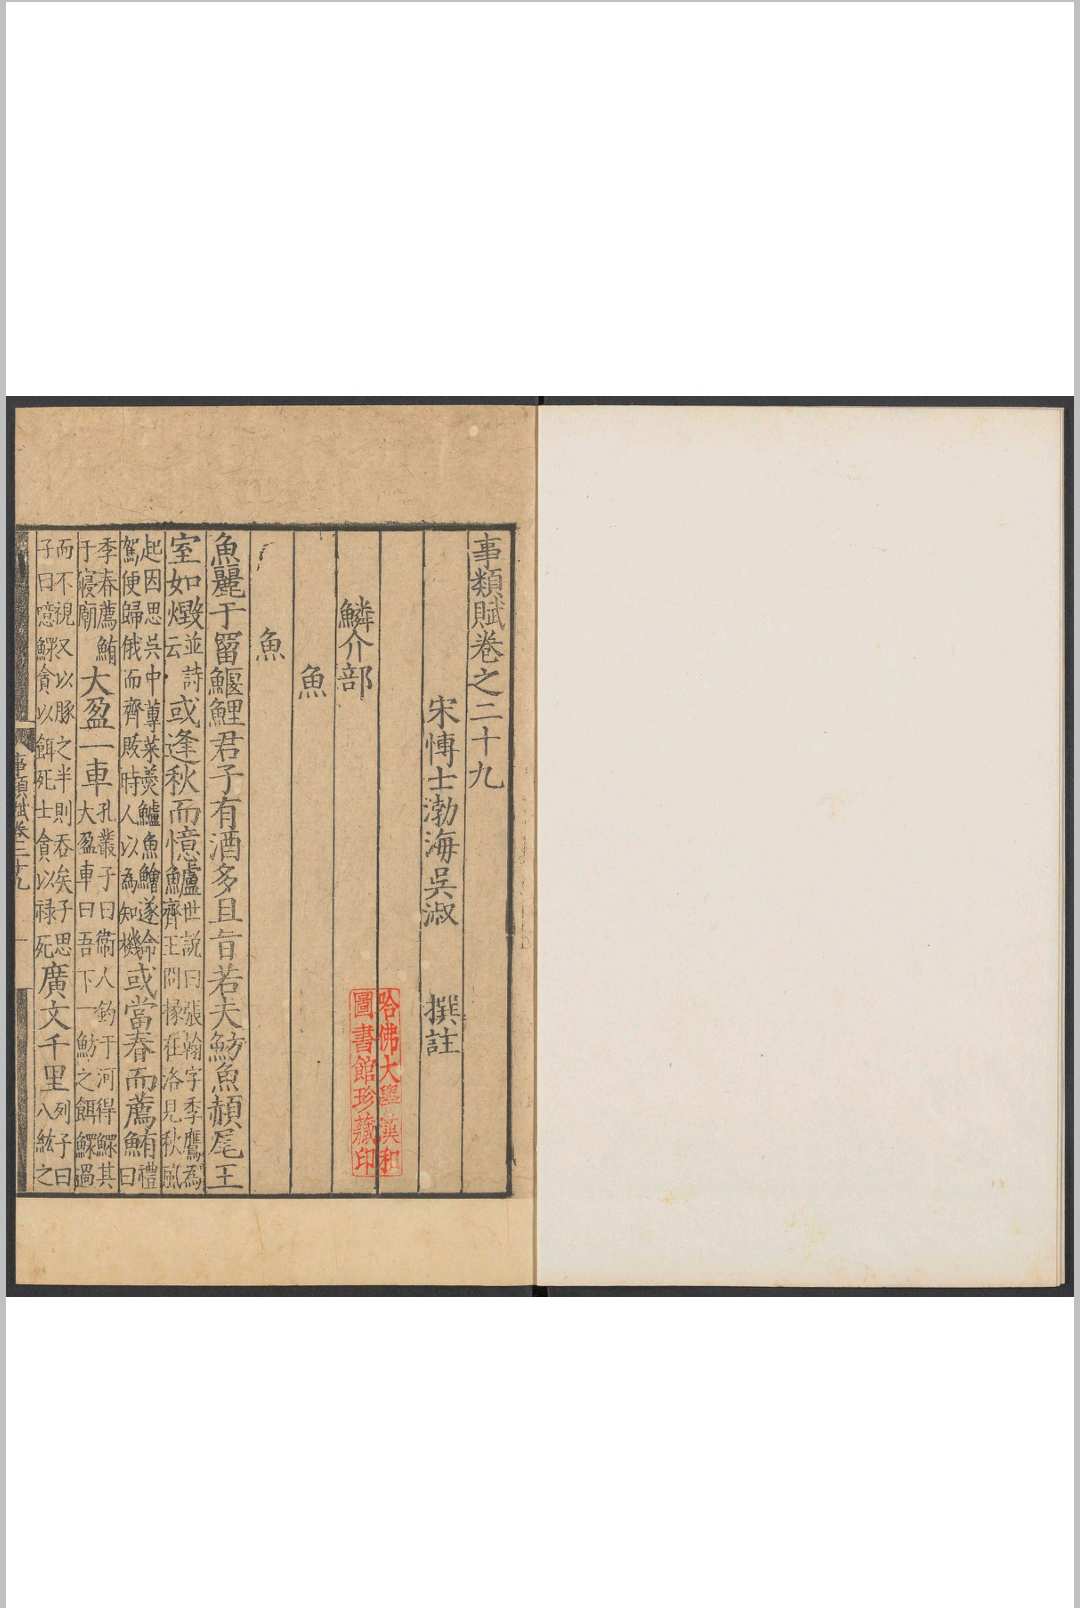 事類賦卷之二十九
宋博士渤海吳淑 撰註
鱗介部
魚
魚
魚麗于罶鰋鯉君子有酒多且旨若夫魴魚赬尾王
室如燬並詩云或逢秋而憶鱸世說曰張翰字季鷹為齊王冏掾在洛見秋風
起因思吳中蓴菜羹鱸魚鱠遂命駕便歸俄而齊敗時人以為知機或當春而薦鮪禮曰
季春薦鮪于寢廟大盈一車孔叢子曰衛人釣于河得鰥其大盈車曰吾下一魴之餌鰥過
而不視又以豚之半則吞矣子思子曰噫鰥貪以餌死士貪以祿死廣文千里列子曰八紘之
事類賦卷二十九
一
哈佛大學漢和
圖書館珍藏印